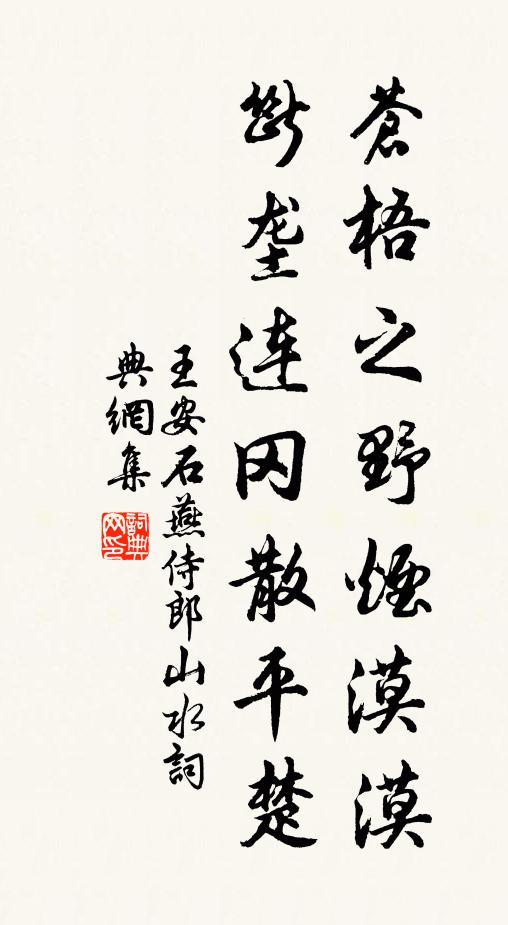 蒼梧之野煙漠漠
斷壟連岡散平楚
王安石燕侍郎山水詞
典網集
詞典
网印